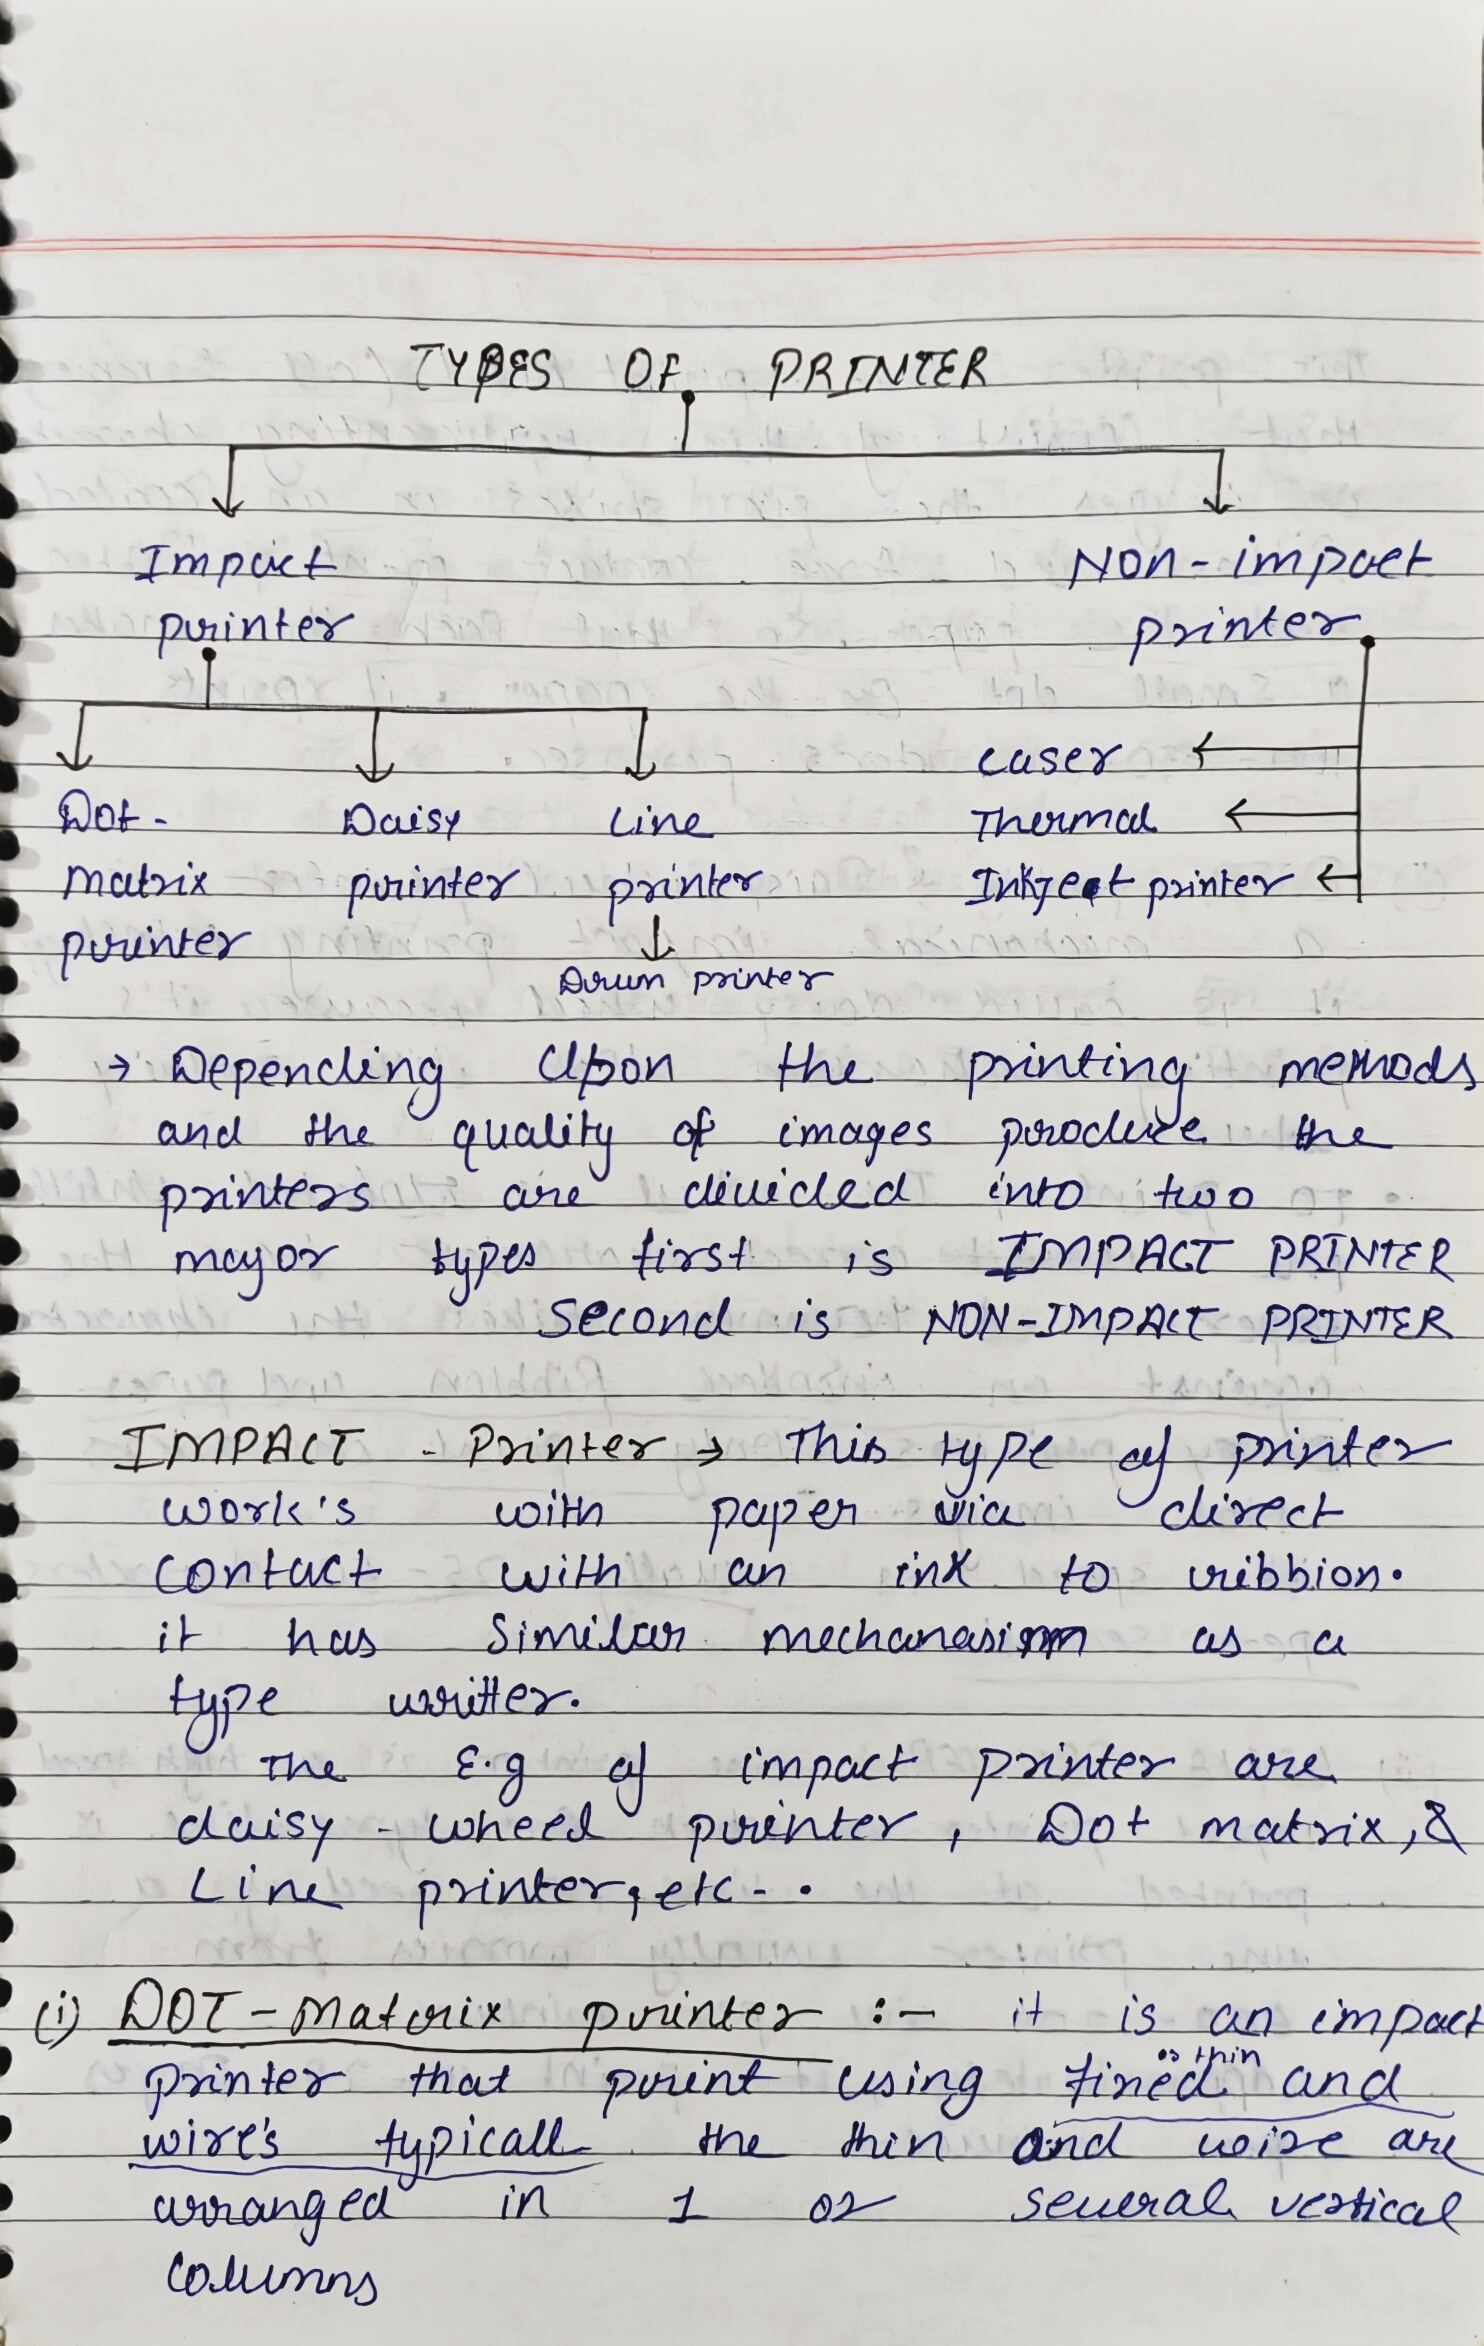 TYPES OF PRINTER
Impact
printer
Non-impact
printer
Dot-
matrix
printer
Daisy
printer
Line
printer
Drum printer
Laser
Thermal
Inkjeot printer
→ Depending Upon the printing methods
and the quality of images produce the
printers are divided into two
major types first is IMPACT PRINTER
Second is NON-IMPACT PRINTER
IMPACT - Printer → This type of printer
work's with paper via direct
contact with an ink to ribbion.
it has Similar mechanasism as a
type writter.
The E.g of impact printer are
daisy - wheel printer, Dot matrix, &
Line printer, etc - .
(i) DOT - Matrix printer :- it is an impact
or thin
printer that print using fined and
wire's typicall the thin and wire are
arranged in 1 or several vertical
Columns